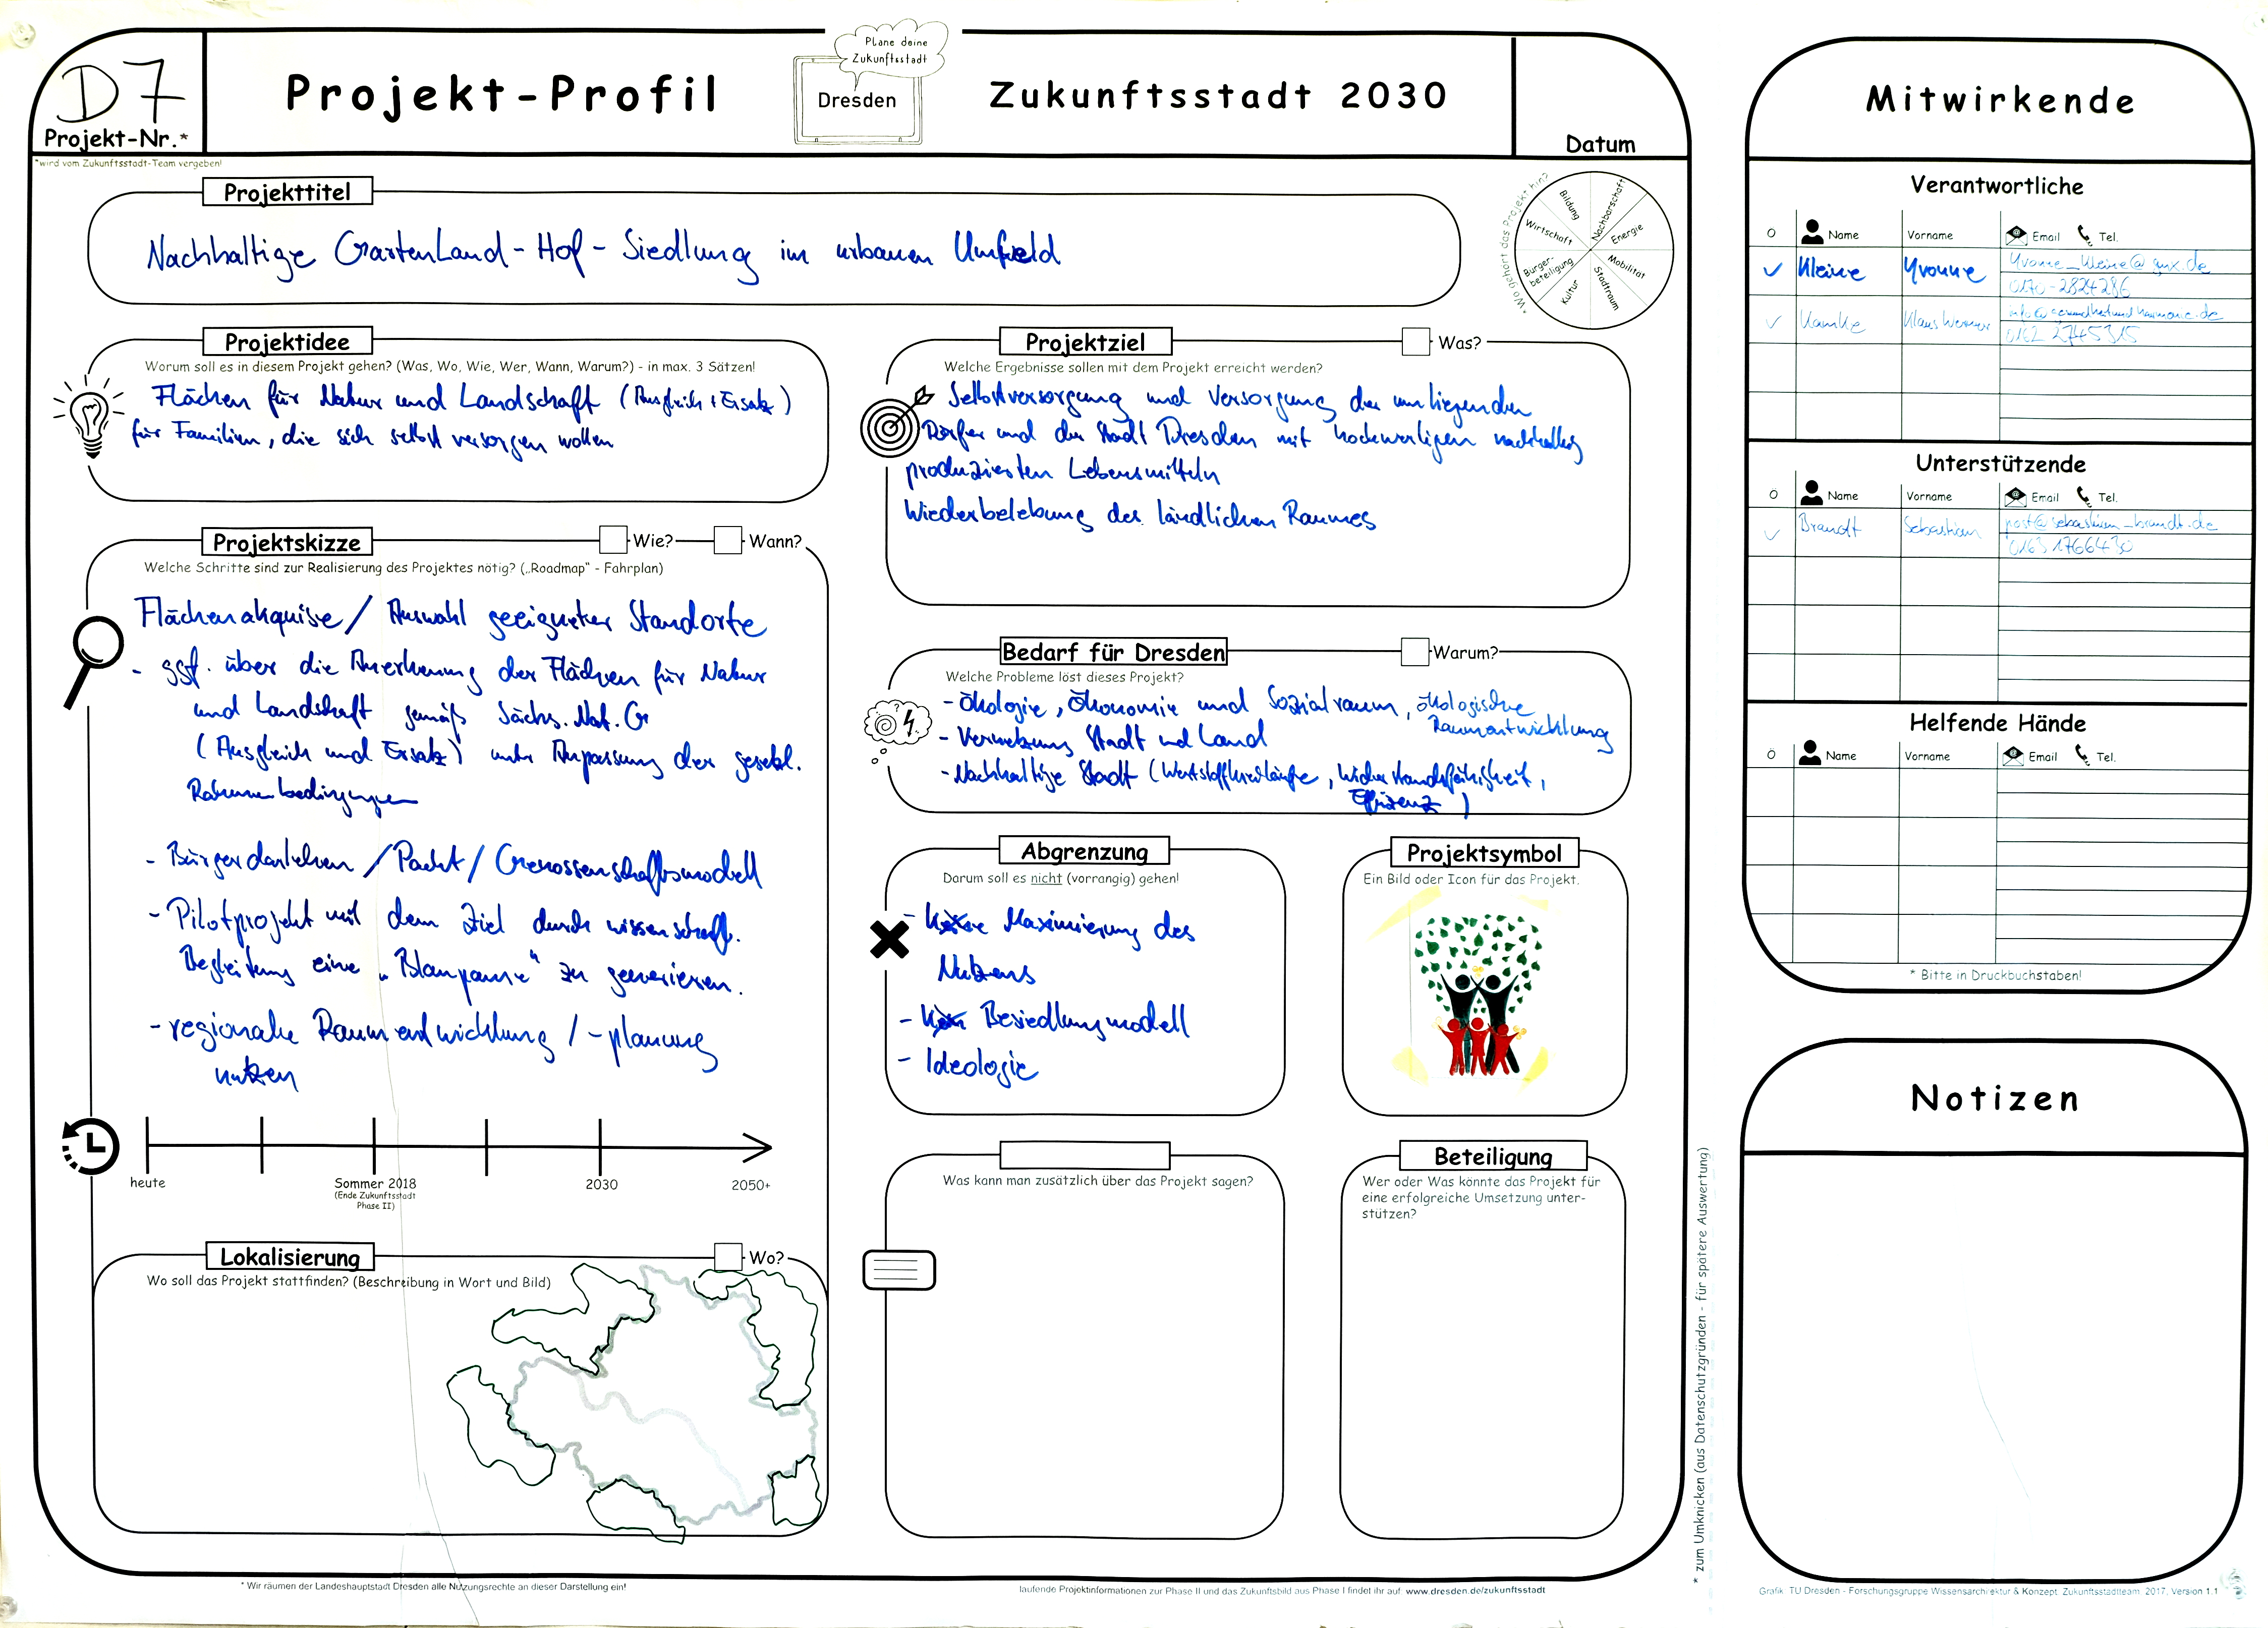 D7
Projekt-Nr.*
*wird vom Zukunftsstadt-Team vergeben!
Projekt-Profil
Plane deine
Zukunftsstadt
Dresden
Zukunftsstadt 2030
Datum
Projekttitel
Nachhaltige GartenLand-Hof-Siedlung im urbanen Umfeld
* Wo gehört das Projekt hin?
Bildung
Nachbarschaft
Wirtschaft
Energie
Bürger-
beteiligung
Mobilität
Kultur
Stadtraum
Projektidee
Worum soll es in diesem Projekt gehen? (Was, Wo, Wie, Wer, Wann, Warum?) - in max. 3 Sätzen!
Flächen für Natur und Landschaft (Ausgleich + Ersatz)
für Familien, die sich selbst versorgen wollen
Projektskizze
Wie?
Wann?
Welche Schritte sind zur Realisierung des Projektes nötig? („Roadmap" - Fahrplan)
Flächenakquise / Auswahl geeigneter Standorte
- ggf. über die Anerkennung der Flächen für Natur
und Landschaft gemäß Sächs. Nat. G
(Ausgleich und Ersatz) unter Anpassung der gesetzl.
Rahmenbedingungen
- Bürgerdarlehen / Pacht / Genossenschaftsmodell
- Pilotprojekt mit dem Ziel durch wissenschaftl.
Begleitung eine „Blaupause" zu generieren.
- regionale Raumentwicklung / -planung
nutzen
heute
Sommer 2018
(Ende Zukunftsstadt
Phase II)
2030
2050+
Lokalisierung
Wo?
Wo soll das Projekt stattfinden? (Beschreibung in Wort und Bild)
Projektziel
Was?
Welche Ergebnisse sollen mit dem Projekt erreicht werden?
Selbstversorgung und Versorgung der umliegenden
Dörfer und der Stadt Dresden mit hochwertigen nachhaltig
produzierten Lebensmitteln
Wiederbelebung des ländlichen Raumes
Bedarf für Dresden
Warum?
Welche Probleme löst dieses Projekt?
- Ökologie, Ökonomie und Sozialraum, ökologische
Raumentwicklung
- Vernetzung Stadt und Land
- Nachhaltige Stadt (Wertstoffkreisläufe, Widerstandsfähigkeit,
Effizenz)
Abgrenzung
Darum soll es nicht (vorrangig) gehen!
- Maximierung des
Nutzens
- Besiedlungsmodell
- Ideologie
Projektsymbol
Ein Bild oder Icon für das Projekt.
Was kann man zusätzlich über das Projekt sagen?
Beteiligung
Wer oder Was könnte das Projekt für
eine erfolgreiche Umsetzung unter-
stützen?
* Wir räumen der Landeshauptstadt Dresden alle Nutzungsrechte an dieser Darstellung ein!
laufende Projektinformationen zur Phase II und das Zukunftsbild aus Phase I findet ihr auf: www.dresden.de/zukunftsstadt
* zum Umknicken (aus Datenschutzgründen - für spätere Auswertung)
Mitwirkende
Verantwortliche
Ö Name Vorname Email Tel.
Kleine Yvonne Yvonne_Kleine@gmx.de
0170-2824286
Kamke Klaus Werner info@gesundheitundharmonie.de
0162 2745315
Unterstützende
Ö Name Vorname Email Tel.
Brandt Sebastian post@sebastian_brandt.de
0163 1766430
Helfende Hände
Ö Name Vorname Email Tel.
* Bitte in Druckbuchstaben!
Notizen
Grafik: TU Dresden - Forschungsgruppe Wissensarchitektur & Konzept: Zukunftsstadtteam, 2017, Version 1.1